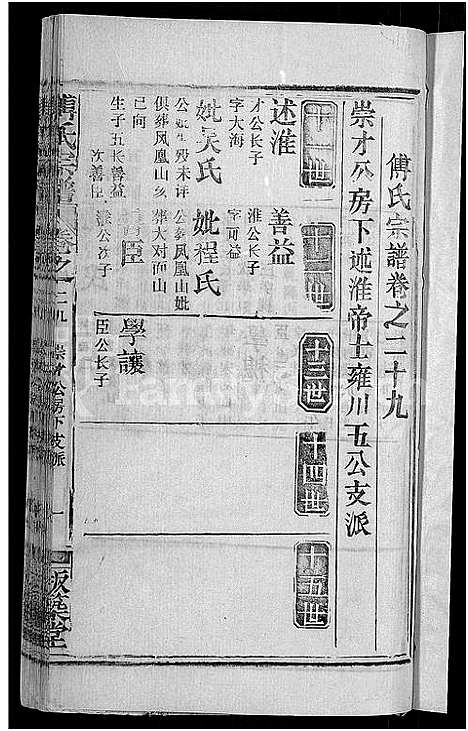 傅氏宗譜卷之二十九
崇才公房下述淮帝士雍川五公支派
十一世
十二世
十三世
十四世
十五世
述淮
才公長子
字大海
妣吳氏
公妣生殁未详
俱葬凤凰山亥
巳向
生子五长善益
次善臣
善益
淮公長子
字可益
妣程氏
公葬凤凰山妣
葬大对面山
善臣
淮公次子
學讓
臣公長子
傅氏宗譜
卷之二十九
崇才公房下支派
一
版築堂